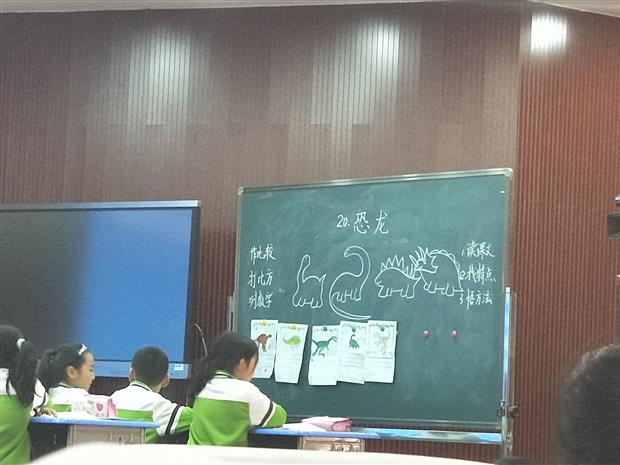 20.恐龙
作比较
打比方
列数字
1.读课文
2.找特点
3.悟方法